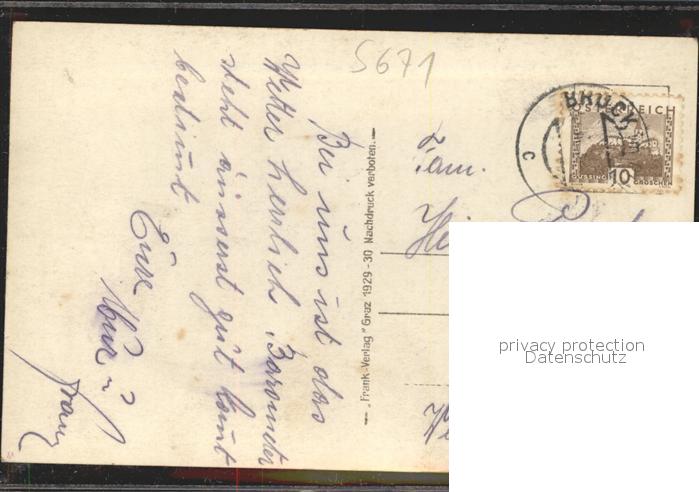 5671
Bei uns ist das
Wetter herrlich, Barometer
steht äusserst gut kommt
bestimmt
Eure
Franz
"Frank-Verlag" Graz 1929-30 Nachdruck verboten.
Fam.
BRUCK
C
ÖSTERREICH
GÜSSING 10 GROSCHEN
privacy protection
Datenschutz